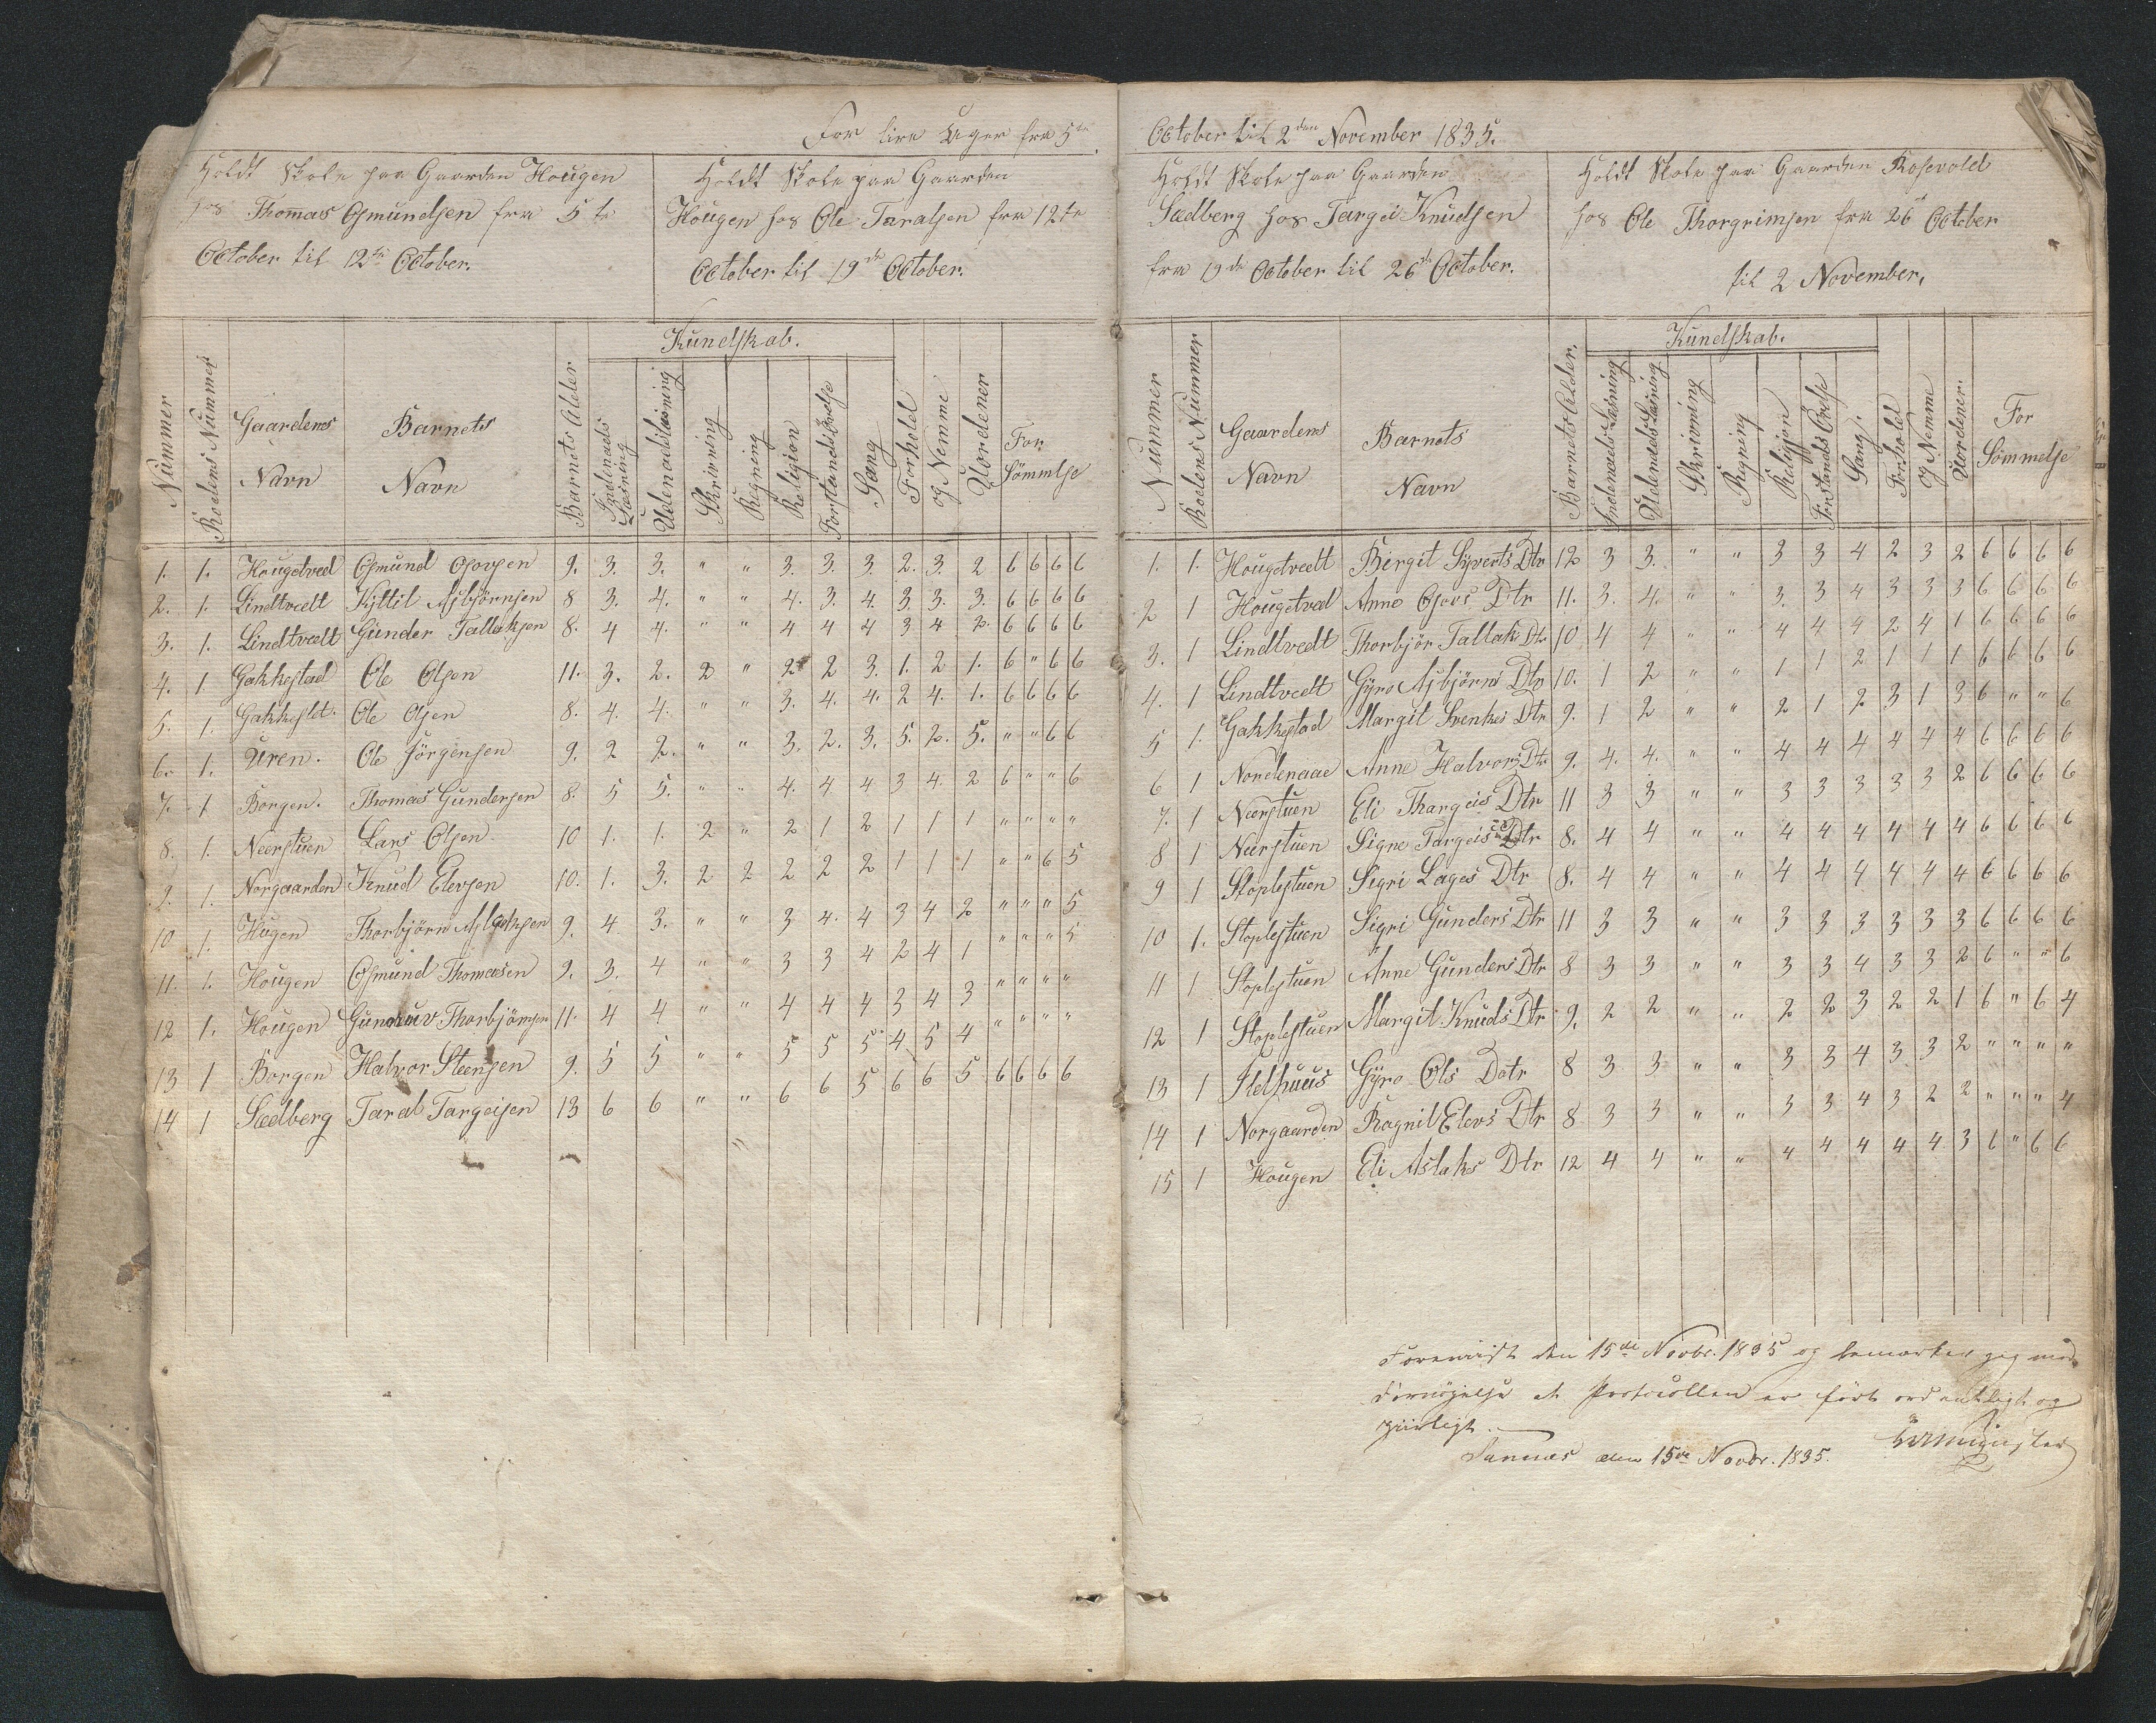 For fire Uger fra 5te
Holdt Skole paa Gaarden Hougen
hos Thomas Osmundsen fra 5te
October til 12te October.
Holdt Skole paa Gaarden
Hougen hos Ole Taralsen fra 12te
October til 19de October.
Kundskab.
Nummer Roedens Nummer Gaardens Navn Barnets Navn Barnets Alder Indenads Læsning Udenadslæsning Skrivning Regning Religion Forstands Øvelse Sang Forhold og Nemme Uordener For Sömmelse
1. 1. Hougetved Osmund Osovsen 9. 3. 3. " " 3. 3. 3. 2. 3. 2 6 6 6 6
2. 1. Lindtvedt Kjittil Asbjörnsen 8 3. 4. " " 4. 3. 4. 3. 3. 3. 6 6 6 6
3. 1. Lindtvedt Gunder Tallaksen 8. 4 4. " " 4 4 4 3 4 2. 6 6 6 6
4. 1 Gakkestad Ole Olsen 11. 3. 2. 2 " 2 2 3. 1. 2 1. 6 " 6 6
5. 1. Gakkestd. Ole Olsen 8. 4. 4. " " 3. 4. 4. 2 4. 1. 6 6 6 6
6. 1. Uren. Ole Jörgensen 9. 2 2. " " 3. 2. 3. 5. 2. 5. " " 6 6
7. 1 Borgen. Thomas Gundersen 8. 5 5. " " 4. 4. 4 3 4. 2 6 " " 6
8. 1. Neerstuen Lars Olsen 10 1. 1. 2 " 2 1 2 1 1 1 " " " "
9. 1. Norgaarden Knud Elevsen 10. 1. 3. 2 2 2 2 2 1 1 1 " " 6 5
10 1. Hugen Thorbjörn Aslaksen 9. 4 3. " " 3 4. 4 3 4 2 " " " 5
11. 1. Hougen Osmund Thomasen 9. 3. 4 " " 3 3 4 2 4 1 " " " 5
12 1. Hougen Gunnuv Thorbjörnsen 11. 4 4 " " 4 4 4 3 4 3 " " " "
13 1 Borgen Halvor Steensen 9. 5 5 " " 5 5 5 4 5 4 " " " "
14 1 Sædberg Taral Targeisen 13 6 6 " " 6 6 5 6 6 5 6 6 6 6
October til 2den November 1835.
Holdt Skole paa Gaarden
Sædberg hos Targei Knudsen
fra 19de October til 26de October.
Holdt Skole paa Gaarden Rosevold
hos Ole Thorgrimsen fra 26de October
til 2 November.
Kundskab.
Nummer Roedens Nummer Gaardens Navn Barnets Navn Barnets Alder. Indenads Læsning Udendads Læsning Skrivning Regning Religjon Forstands Övelse Sang. Forhold og Nemme Uordener. For Sömmelse
1. 1. Hougetvedt Birgit Syverts Dtr 12 3 3. " " 3 3 4 2 3 2 6 6 6 6
2 1 Hougetved Anne Osovs Dtr 11. 3. 4. " " 3. 3 4 3 3 3 6 6 6 6
3. 1 Lindtvedt Thorbjör Tallak Dtr 10 4 4 " " 4 4 4 2 4 1 6 6 6 6
4. 1 Lindtvedt Gyro Asbjörns Dtr 10. 1 2 " " 1 1 2 1 1 1 6 6 6 6
5 1. Gakkestad Margit Svenkes Dtr 9. 1 2 " " 2 1 2 3 1 3 6 " " 6
6 1 Nordenaae Anne Halvors Dtr 9. 4. 4. " " 4 4 4 4 4 4 6 6 6 6
7. 1 Neerstuen Eli Thargeis Dtr 11 3 3 " " 3 3 3 3 3 2 6 6 6 6
8 1 Neerstuen Signe Targeis Dtr 8. 4 4 " " 4 4 4 4 4 4 6 6 6 6
9 1 Stoplestuen Sigri Lages Dtr 8. 4 4 " " 4 4 4 4 4 4 6 6 6 6
10 1. Stoplestuen Sigri Gunders Dtr 11 3 3 " " 3 3 3 3 3 3 6 6 6 6
11 1 Stoplestuen Anne Gunders Dtr 8 3 3 " " 3 3 4 3 3 2 6 " " 6
12 1 Stoplestuen Margit Knuds Dtr 9. 2 2 " " 2 2 3 2 2 1 6 " 6 4
13 1 Ildhuus Gyro Ols Datr 8 3 3 " " 3 3 4 3 3 2 " " " "
14 1 Norgaarden Ragnil Elevs Dtr 8 3 3 " " 3 3 4 3 2 2 " " " 4
15 1 Hougen Eli Aslaks Dtr 12 4 4 " " 4 4 4 4 4 3 6 " 6 6
Foreviist den 15de Novbr. 1835 og bemærker jeg med
Fornöjelse at Protocollen er fört ordentligt og
ziirligt.
Sannæs den 15de Novbr. 1835.